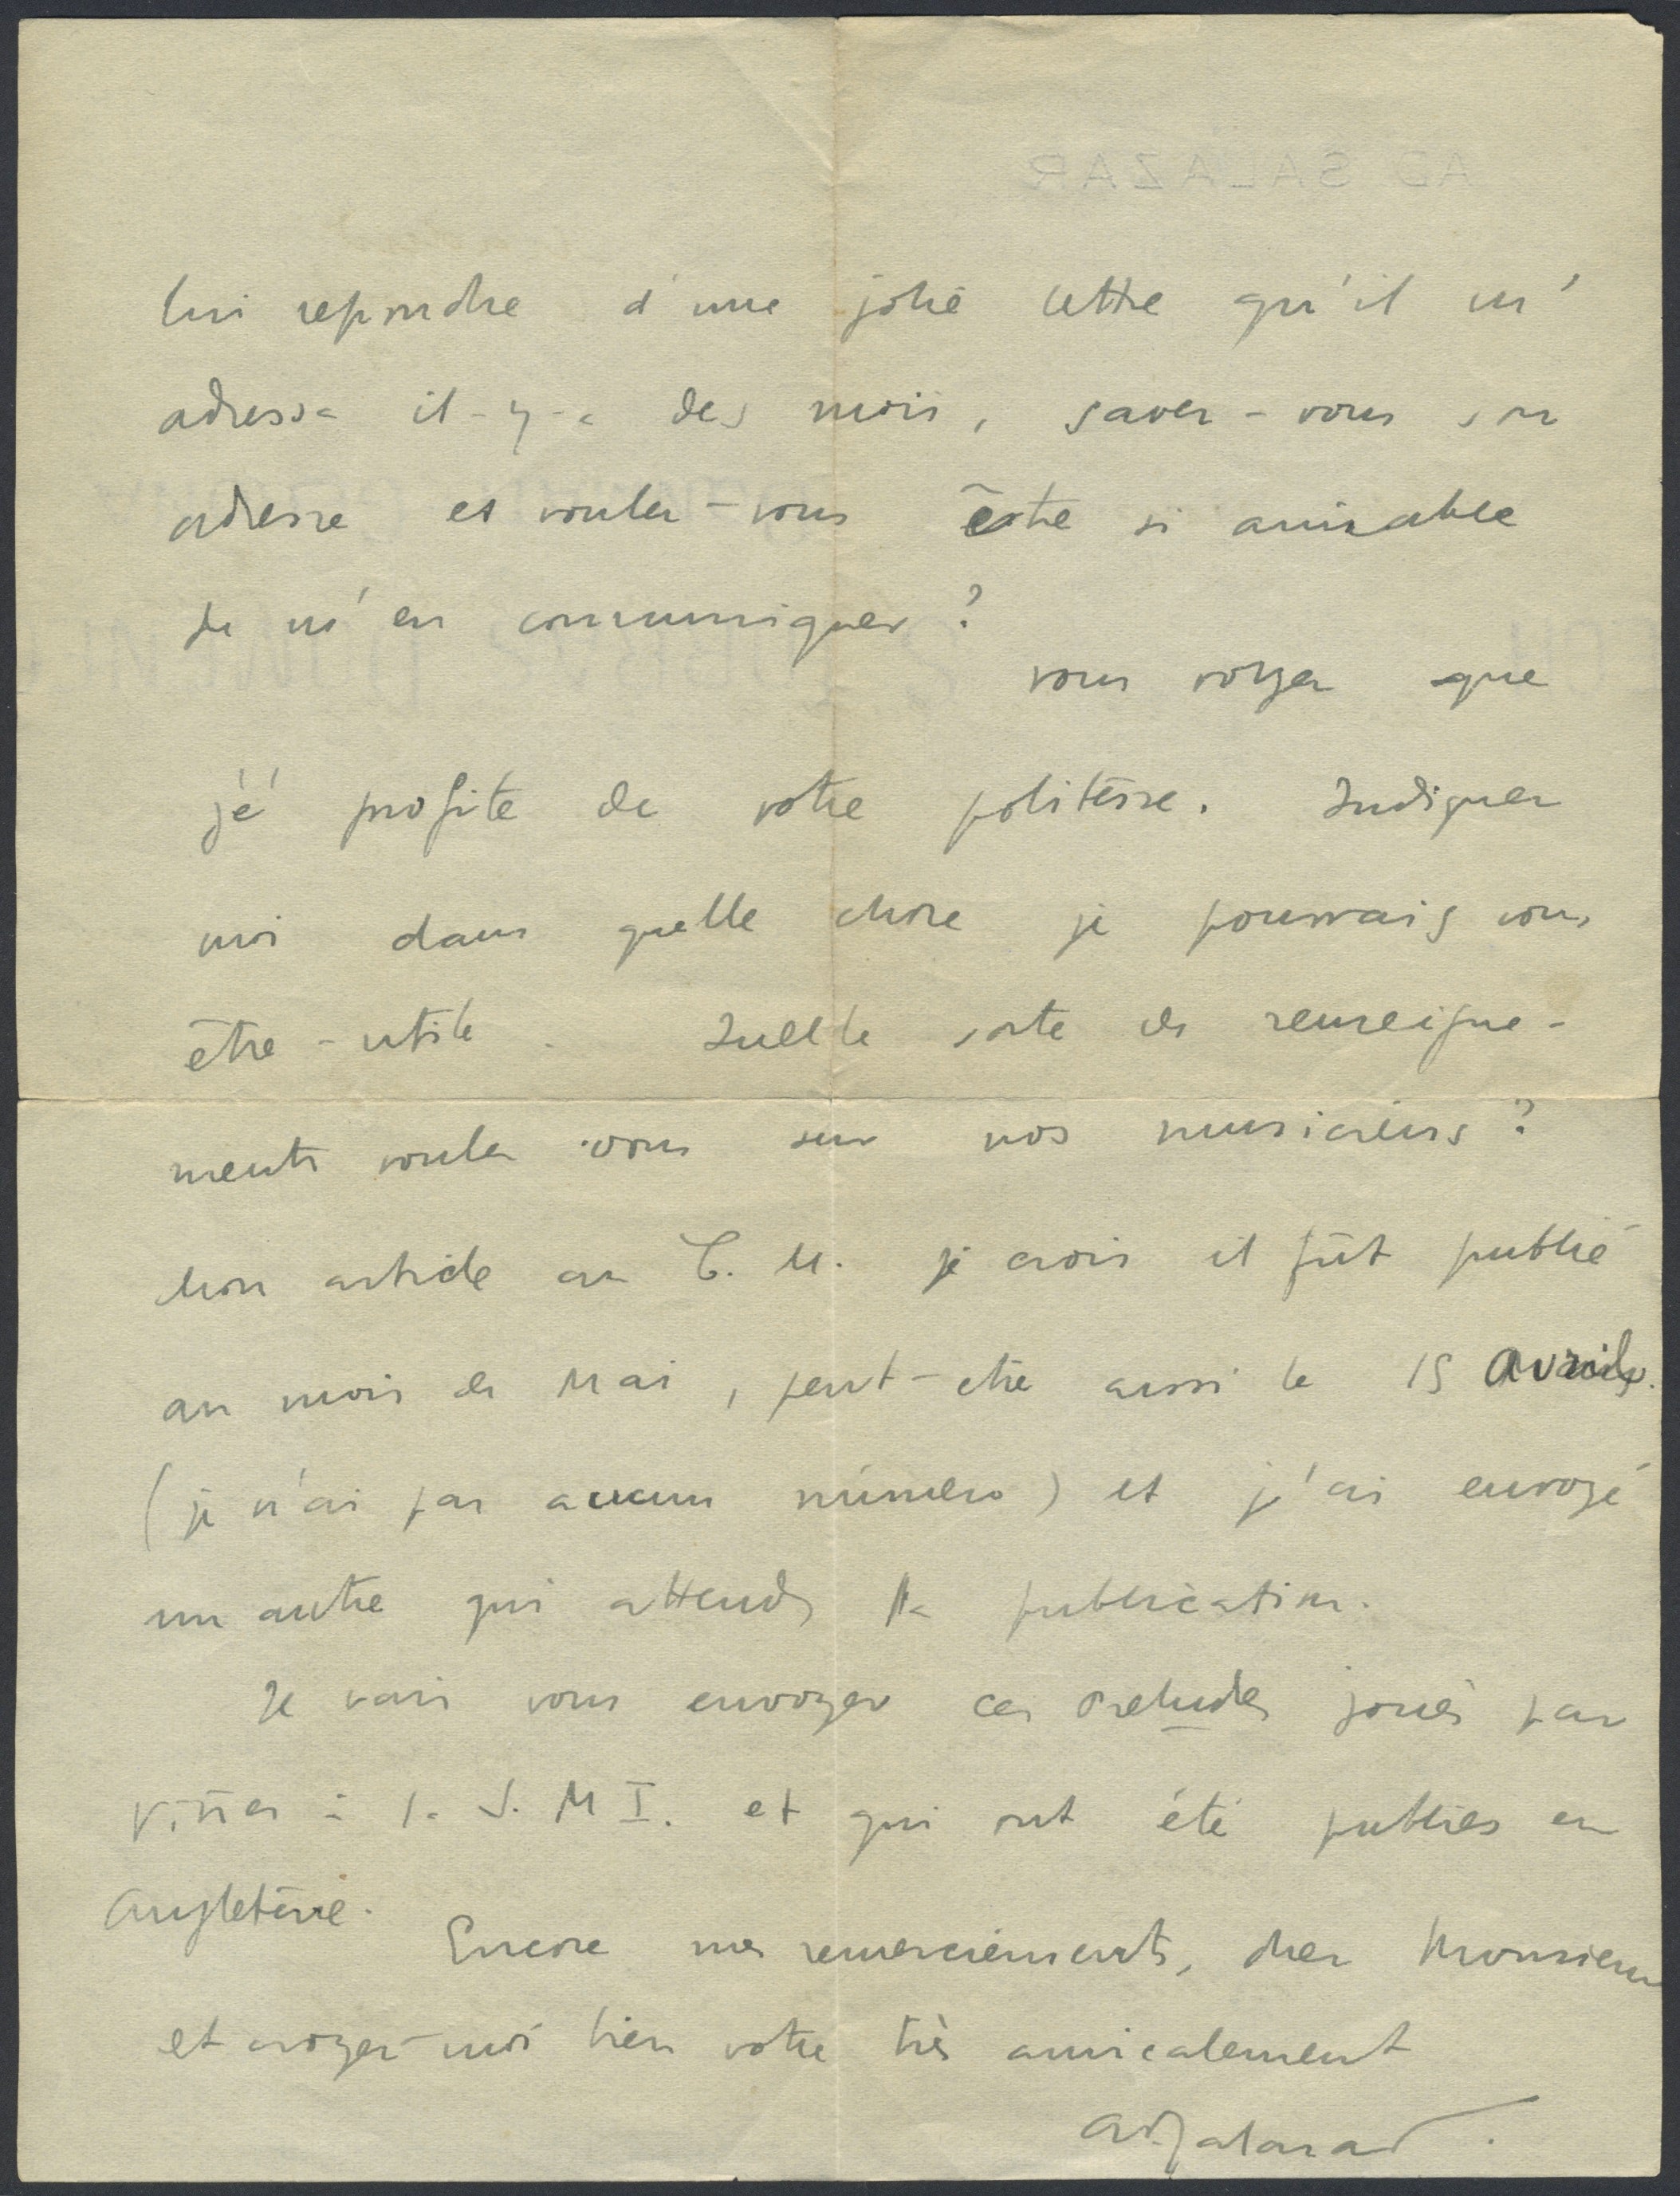 AD SALAZAR
lui repondre d'une jolie lettre qu'il m'
adressa il-y-a des mois, savez-vous son
adresse et voulez-vous être si aimable
de m'en communiquer?
vous voyez que
jé profite de votre politèsse. Indiquez
moi dans quelle chose je pourrais vous
être-utile. Quelle sorte de renseigne-
ments voulez vous sur nos musiciens?
Mon article au C. M. je crois il fût publié
au mois de Mai, peut-etre aussi le 15 avril.
(je n'ai pas aucun número) et j'ai envoyé
un autre qui attends la publication.
Je vais vous envoyer ces Preludes joués par
Viñes à la S. M I. et qui ont été publies en
Angletèrre.
Encore mes remerciements, cher Monsieur
et croyez-moi bien votre très amicalement
Ad Salazar.